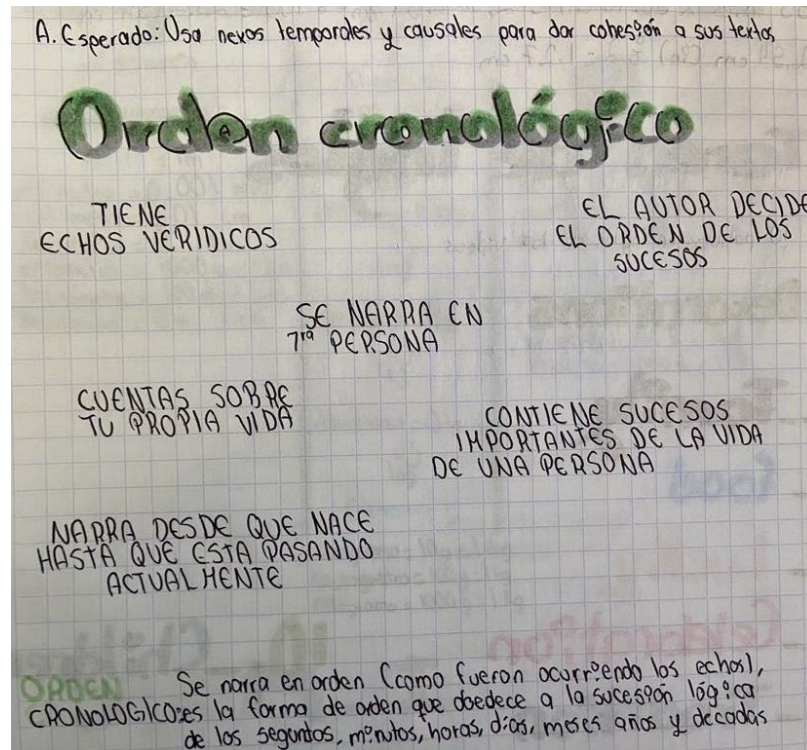 A. Esperado: Usa nexos temporales y causales para dar cohesión a sus textos
Orden cronológico
TIENE
ECHOS VERIDICOS
EL AUTOR DECIDE
EL ORDEN DE LOS
SUCESOS
SE NARRA EN
1ra PERSONA
CUENTAS SOBRE
TU PROPIA VIDA
CONTIENE SUCESOS
IMPORTANTES DE LA VIDA
DE UNA PERSONA
NARRA DESDE QUE NACE
HASTA QUE ESTA PASANDO
ACTUALMENTE
ORDEN Se narra en orden (como fueron ocurriendo los echos),
CRONOLOGICO: es la forma de orden que obedece a la sucesión lógica
de los segundos, minutos, horas, días, meses años y decadas